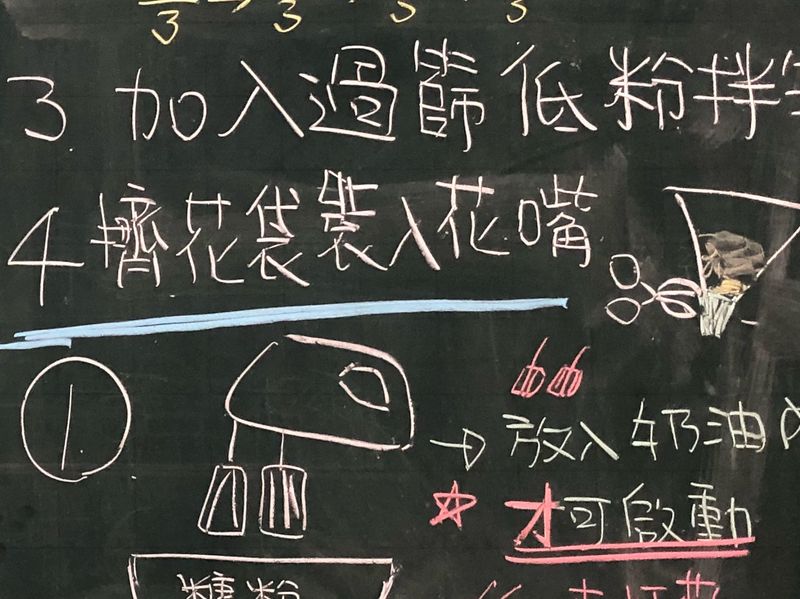 3 3 3 3
3 加入過篩低粉拌
4 擠花袋裝入花嘴
1
→放入奶油內
才可啟動
糖粉